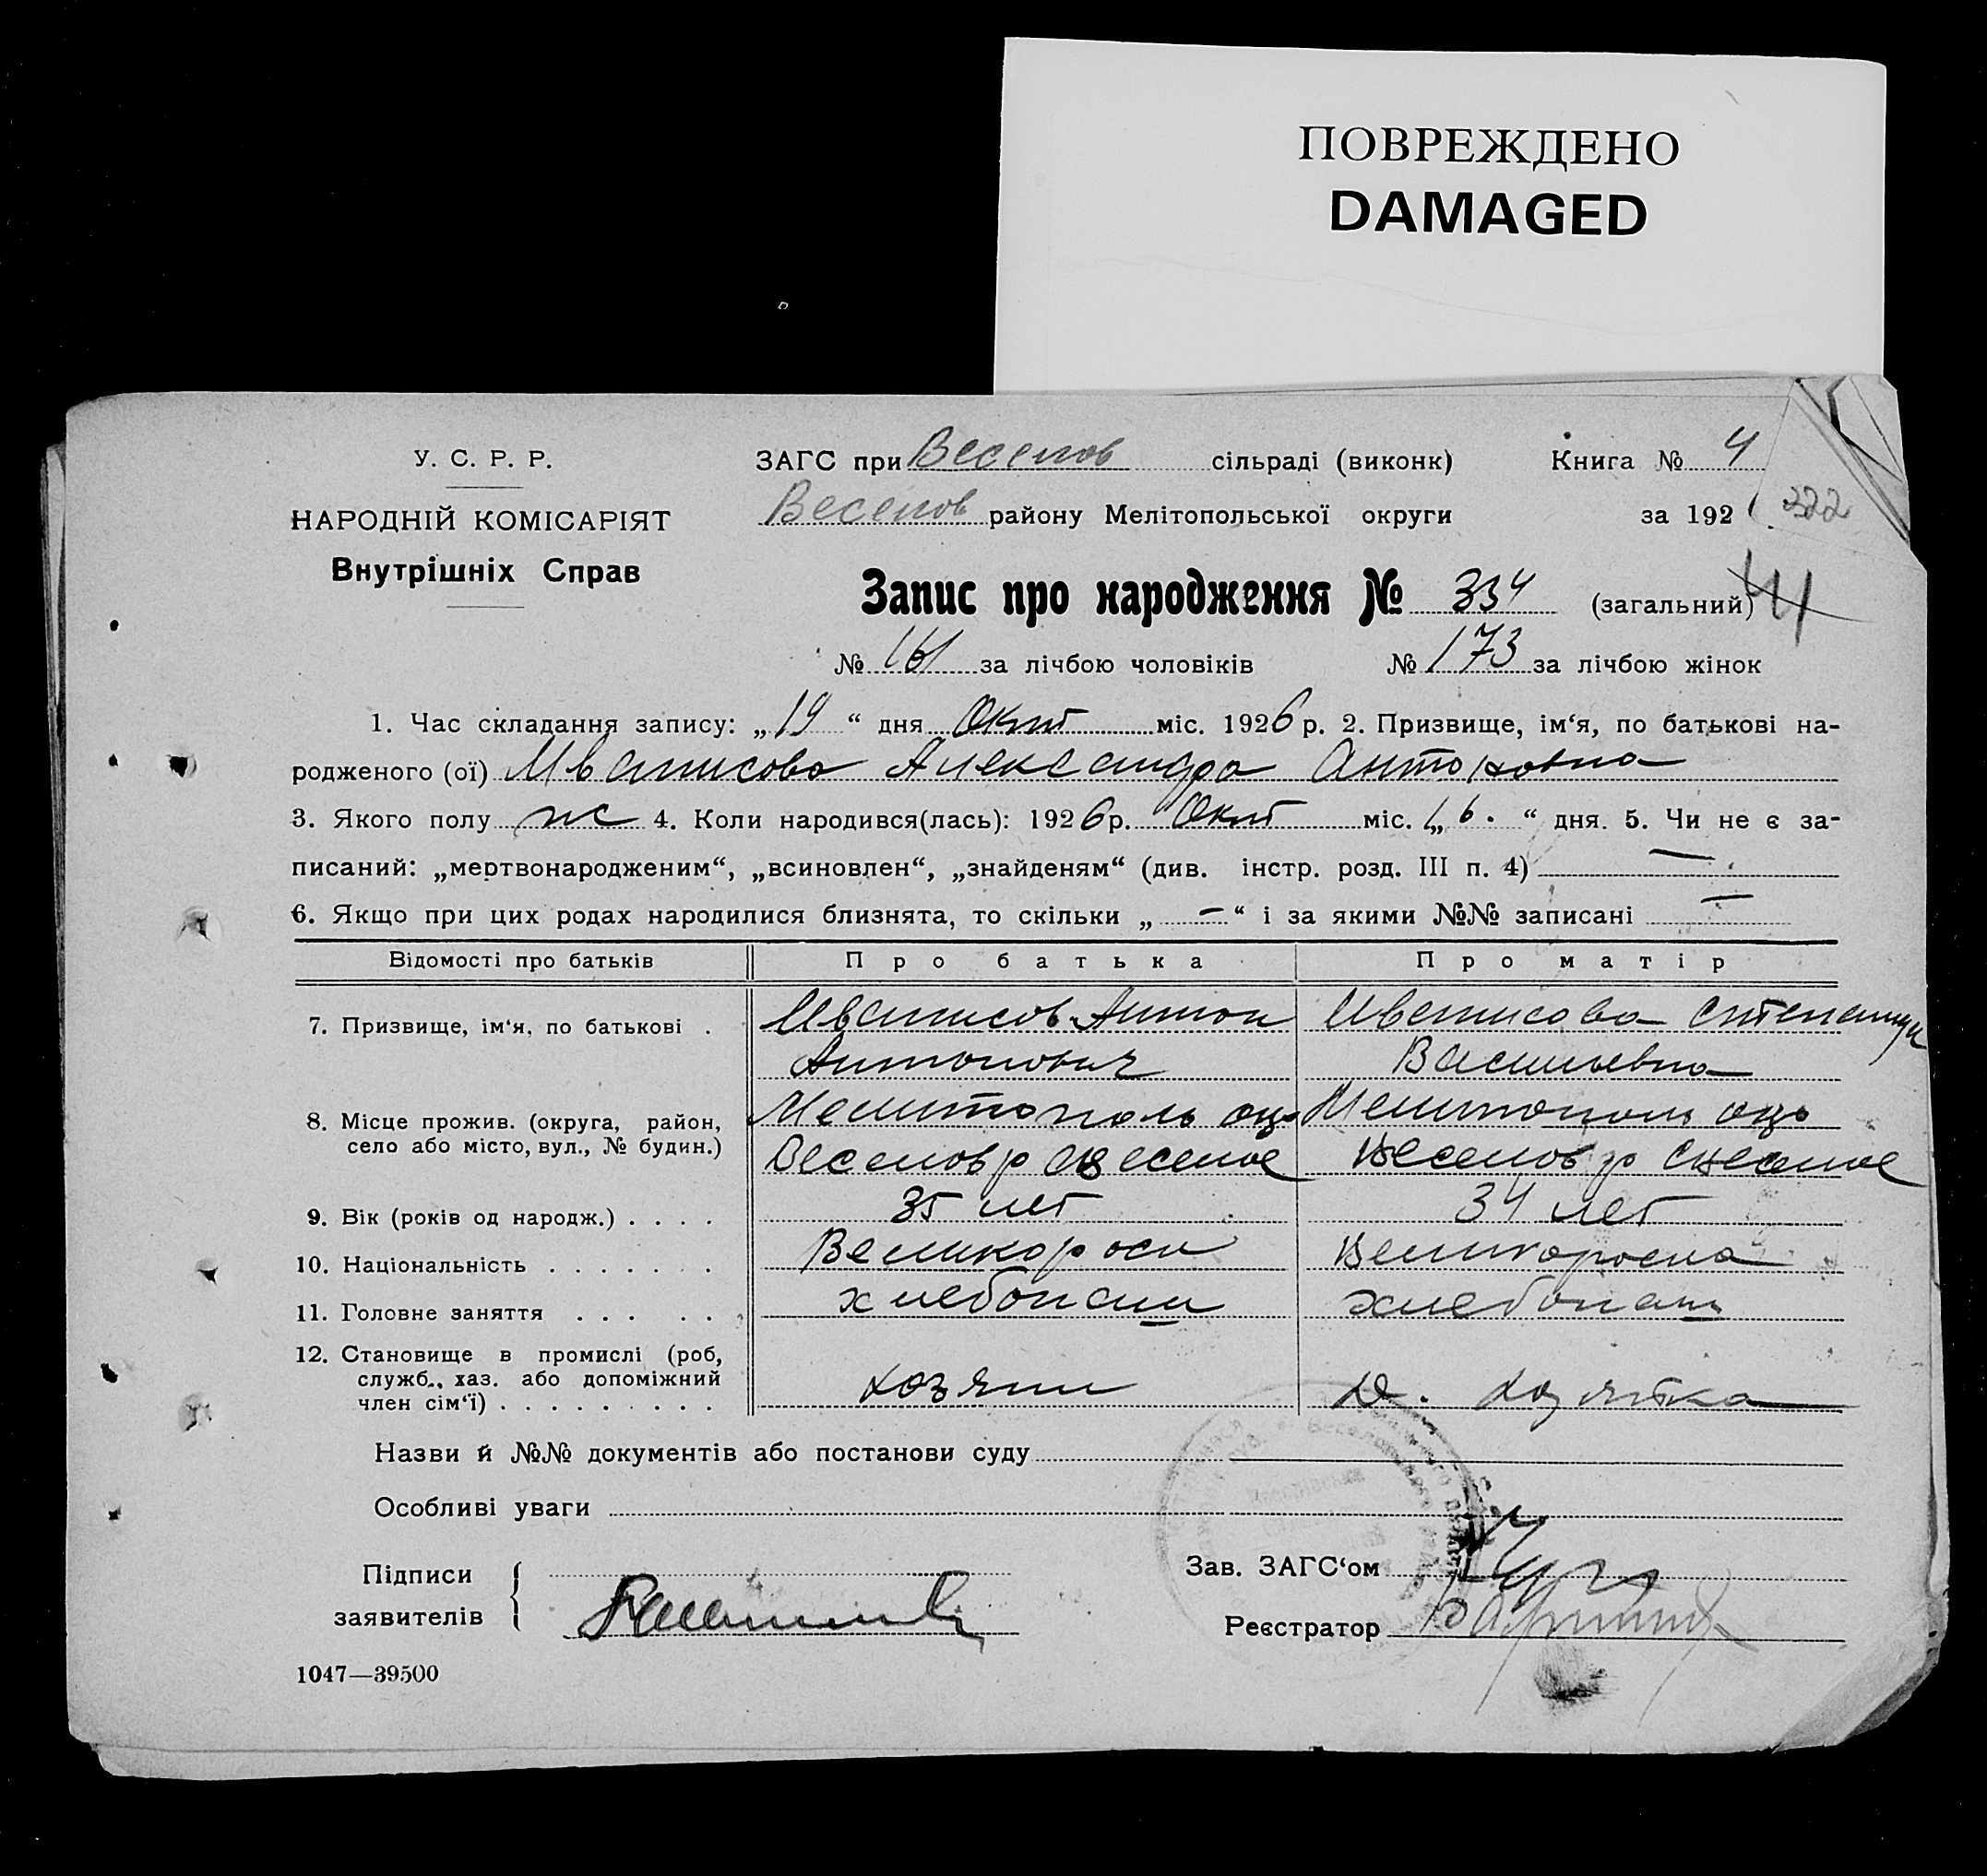 ПОВРЕЖДЕНО
DAMAGED
У. С. Р. Р.
НАРОДНІЙ КОМІСАРІЯТ
Внутрішніх Справ
ЗАГС при Веселов сільраді (виконк) Книга № 4
Веселов району Мелітопольської округи за 192
322
Запис про народження № 334 (загальний)
№ 161 за лічбою чоловіків № 173 за лічбою жінок
1. Час складання запису: „19“ дня Окт міс. 1926 р. 2. Призвище, ім‘я, по батькові на-
родженого (ої) Александра Антоновна
3. Якого полу ж 4. Коли народився(лась): 1926 р. Окт міс. „16.“ дня. 5. Чи не є за-
писаний: „мертвонародженим“, „всиновлен“, „знайденям“ (див. інстр. розд. III п. 4) —
6. Якщо при цих родах народилися близнята, то скільки „ — “ і за якими №№ записані —
Відомості про батьків Про батька Про матір
7. Призвище, ім‘я, по батькові . Антон
Антонович Васильевна
8. Місце прожив. (округа, район, Мелитополь окр Мелитополь окр
село або місто, вул., № будин.) Веселов р с Веселое Веселов р с Веселое
9. Вік (років од народж.) . . . . 35 лет 34 лет
10. Національність . . . . . . . Великоросс Великороска
11. Головне заняття . . . . . хлебопаш хлебопаш
12. Становище в промислі (роб,
служб., хаз. або допоміжний
член сім‘ї) . . . . . . . . . хозяин д. хозяйка
Назви й №№ документів або постанови суду
Особливі уваги
Підписи Зав. ЗАГС‘ом
заявителів Реєстратор
1047—39500